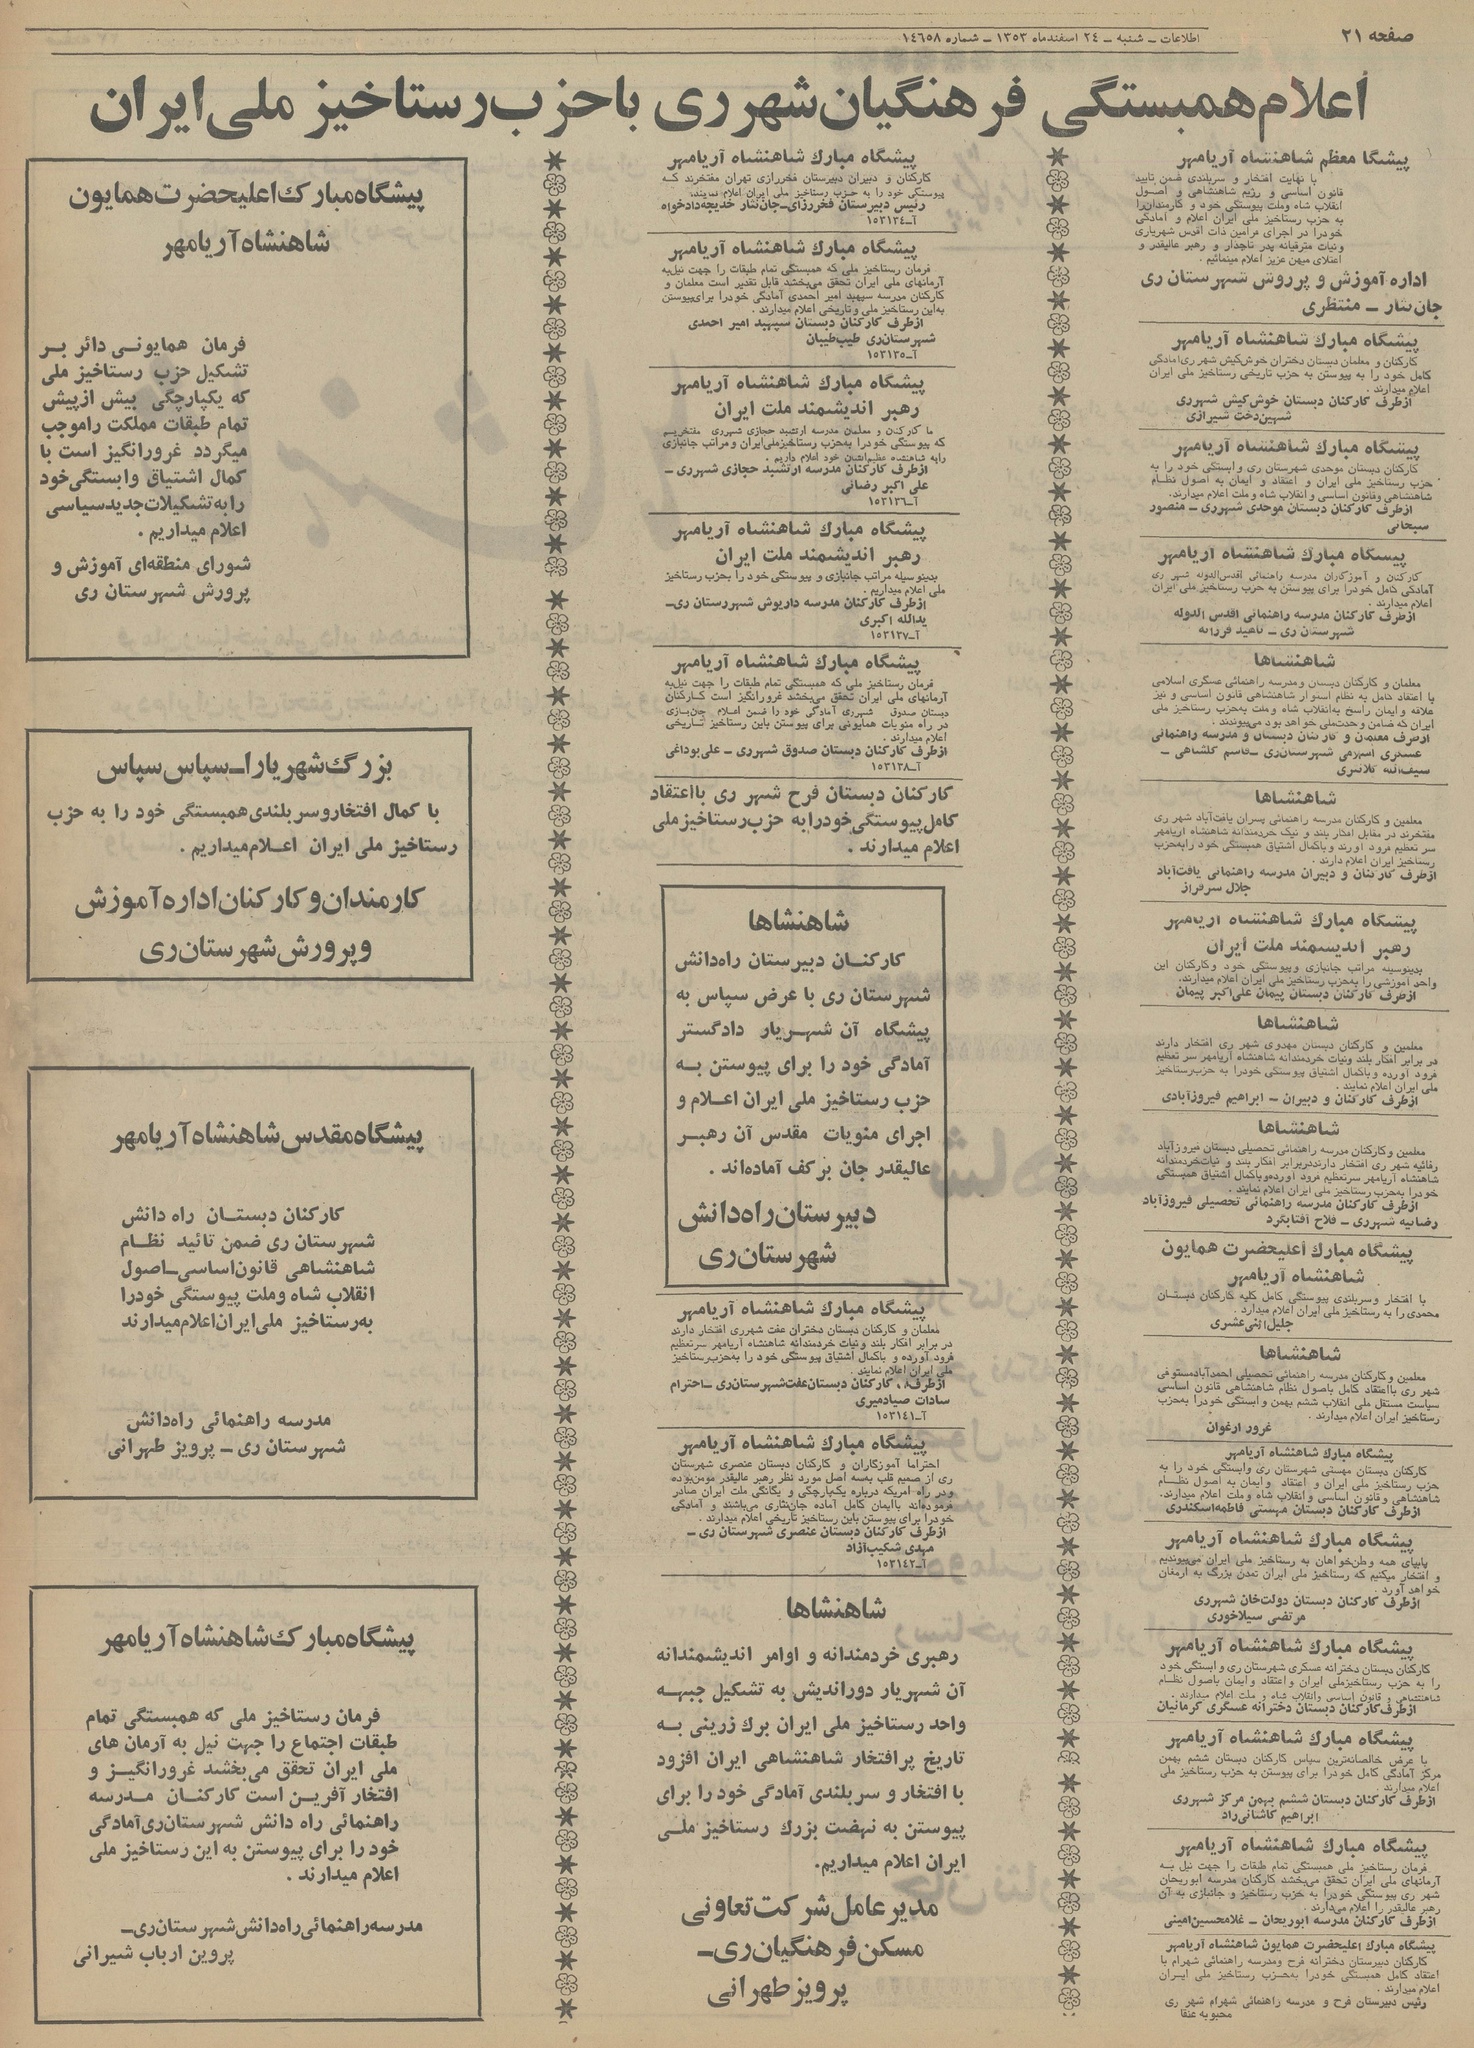 صفحه ۲۱
اطلاعات ـ شنبه ـ ۲۴ اسفندماه ۱۳۵۳ ـ شماره ۱۴۶۵۸
اعلام همبستگی فرهنگیان شهرری با حزب رستاخیز ملی ایران
پیشگا معظم شاهنشاه آریامهر
با نهایت افتخار و سربلندی ضمن تایید
قانون اساسی و رژیم شاهنشاهی و اصول
انقلاب شاه وملت پیوستگی خود و کارمندان را
به حزب رستاخیز ملی ایران اعلام و آمادگی
خودرا در اجرای فرامین ذات اقدس شهریاری
ونیات مترقیانه پدر تاجدار و رهبر عالیقدر و
اعتلای میهن عزیز اعلام مینمائیم .
اداره آموزش و پرروش شهرستان ری
جان نثار ـ منتظری
پیشگاه مبارك شاهنشاه آریامهر
کارکنان و معلمان دبستان دختران خوش‌کیش شهر ری‌آمادگی
کامل خود را به پیوستن به حزب تاریخی رستاخیز ملی ایران
اعلام میدارند .
ازطرف کارکنان دبستان خوش‌کیش شهرری
شهین‌دخت شیرازی
پیشگاه مبارك شاهنشاه آریامهر
کارکنان دبستان موحدی شهرستان ری وابستگی خود را به
حزب رستاخیز ملی ایران و اعتقاد و ایمان به اصول نظـام
شاهنشاهی وقانون اساسی و انقلاب شاه و ملت اعلام میدارند.
ازطرف کارکنان دبستان موحدی شهرری ـ منصور
سبحانی
پیشگاه مبارك شاهنشاه آریامهر
کارکنان و آموزگاران مدرسه راهنمائی اقدس‌الدوله شهر ری
آمادگی کامل خودرا برای پیوستن به حزب رستاخیز ملی ایران
اعلام میدارند .
ازطرف کارکنان مدرسه راهنمائی اقدس الدوله
شهرستان ری ـ ناهید فرزانه
شاهنشاها
معلمان و کارکنان دبستان ومدرسه راهنمائی عسگری اسلامی
با اعتقاد کامل به نظام استوار شاهنشاهی قانون اساسی و نیز
علاقه و ایمان راسخ به‌انقلاب شاه وملت به‌حزب رستاخیز ملی
ایران که ضامن وحدت‌ملی خواهد بود می‌پیوندند .
ازطرف معلمان و کارکنان دبستان و مدرسه راهنمائی
عسگری اسلامی شهرستان‌ری ـ قاسم گلشاهی ـ
سیف‌اله کلانتری
شاهنشاها
معلمین و کارکنان مدرسه راهنمائی پسران یافت‌آباد شهر ری
مفتخرند در مقابل افکار بلند و نیک خردمندانه شاهنشاه آریامهر
سر تعظیم فرود آورند وباکمال اشتیاق همبستگی خود رابه‌حزب
رستاخیز ایران اعلام دارند .
ازطرف کارکنان و دبیران مدرسه راهنمائی یافت‌آباد
جلال سرفراز
پیشگاه مبارك شاهنشاه آریامهر
رهبر اندیشمند ملت ایران
بدینوسیله مراتب جانبازی وپیوستگی خود وکارکنان این
واحد آموزشی را به‌حزب رستاخیز ملی ایران اعلام میدارند.
ازطرف کارکنان دبستان پیمان علی‌اکبر پیمان
شاهنشاها
معلمین و کارکنان دبستان مهدوی شهر ری افتخار دارند
در برابر افکار بلند ونیات خردمندانه شاهنشاه آریامهر سر تعظیم
فرود آورده و باکمال اشتیاق پیوستگی خودرا به حزب‌رستاخیز
ملی ایران اعلام نمایند .
ازطرف کارکنان و دبیران ـ ابراهیم فیروزآبادی
شاهنشاها
معلمین وکارکنان مدرسه راهنمائی تحصیلی دبستان فیروزآباد
رفائیه شهر ری افتخار دارنددربرابر افکار بلند و نیات‌خردمندانه
شاهنشاه آریامهر سرتعظیم فرود آورده‌وباکمال اشتیاق همبستگی
خودرا به‌حزب رستاخیز ملی ایران اعلام نمایند .
ازطرف کارکنان مدرسه راهنمائی تحصیلی فیروزآباد
رضاییه شهرری ـ فلاح آفتابگرد
پیشگاه مبارك اعلیحضرت همایون
شاهنشاه آریامهر
با افتخار وسربلندی پیوستگی کامل کلیه کارکنان دبستـان
محمدی را به رستاخیز ملی ایران اعلام میدارد .
جلیل اثنی‌عشری
شاهنشاها
معلمین وکارکنان مدرسه راهنمائی تحصیلی احمدآبادمستوفی
شهر ری بااعتقاد کامل باصول نظام شاهنشاهی قانون اساسی
سیاست مستقل ملی انقلاب ششم بهمن وابستگی خودرا به‌حزب
رستاخیز ایران اعلام میدارند .
غرور ارغوان
پیشگاه مبارك شاهنشاه آریامهر
کارکنان دبستان مهستی شهرستان ری وابستگی خود را به
حزب رستاخیز ملی ایران و اعتقاد و ایمان به اصول نظـام
شاهنشاهی وقانون اساسی وانقلاب شاه وملت اعلام میدارند.
ازطرف کارکنان دبستان مهستی فاطمه‌اسکندری
پیشگاه مبارك شاهنشاه آریامهر
پابپای همه وطن‌خواهان به رستاخیز ملی ایران می‌پیوندیم
و افتخار میکنیم که رستاخیز ملی ایران تمدن بزرگ به ارمغان
خواهد آورد .
ازطرف کارکنان دبستان دولت‌خان شهرری
مرتضی سیلاخوری
پیشگاه مبارك شاهنشاه آریامهر
کارکنان دبستان دخترانه عسکری شهرستان ری وابستگی خود
را به حزب رستاخیزملی ایران و اعتقاد وایمان باصول نظـام
شاهنشاهی و قانون اساسی وانقلاب شاه و ملت اعلام میدارند.
ازطرف‌کارکنان دبستان دخترانه عسگری کرمانیان
پیشگاه مبارك شاهنشاه آریامهر
با عرض خالصانه‌ترین سپاس کارکنان دبستان ششم بهمن
مرکز آمادگی کامل خودرا برای پیوستن به حزب رستاخیز ملی
اعلام میدارند .
ازطرف کارکنان دبستان ششم بهمن مرکز شهرری
ابراهیم کاشانی‌راد
پیشگاه مبارك شاهنشاه آریامهر
فرمان رستاخیز ملی همبستگی تمام طبقات را جهت نیل بـه
آرمانهای ملی ایران تحقق می‌بخشد کارکنان مدرسه ابوریحان
شهر ری پیوستگی خودرا به حزب رستاخیز و جانبازی به آن
رهبر عالیقدر را اعلام می‌دارند .
ازطرف کارکنان مدرسه ابوریحان ـ غلامحسین‌امینی
پیشگاه مبارك اعلیحضرت همایون شاهنشاه آریامهر
کارکنان دبیرستان دخترانه فرح ومدرسه راهنمائی شهرام با
اعتقاد کامل همبستگی خودرا به‌حزب رستاخیز ملی ایـران
اعلام میدارند .
رئیس دبیرستان فرح و مدرسه راهنمائی شهرام شهر ری
محبوبه عنقا
پیشگاه مبارك شاهنشاه آریامهر
کارکنان و دبیران دبیرستان فخررازی تهران مفتخرند کـه
پیوستگی خود را به حزب رستاخیز ملی ایران اعلام نمایند.
رئیس دبیرستان فخررازی‌ـ جان‌نثار خدیجه‌دادخواه
آـ ۱۵۳۱۳۴
پیشگاه مبارك شاهنشاه آریامهر
فرمان رستاخیز ملی که همبستگی تمام طبقات را جهت نیل‌به
آرمانهای ملی ایران تحقق می‌بخشد قابل تقدیر است معلمان و
کارکنان مدرسه سپهبد امیر احمدی آمادگی خودرا برای‌پیوستن
به‌این رستاخیز ملی وتاریخی اعلام میدارند .
ازطرف کارکنان دبستان سپهبد امیر احمدی
شهرستان‌ری طیب‌طیبان
آـ ۱۵۳۱۳۵
پیشگاه مبارك شاهنشاه آریامهر
رهبر اندیشمند ملت ایران
ما کارکنان و معلمان مدرسه ارتشبد حجازی شهرری مفتخریـم
که پیوستگی خودرا به‌حزب رستاخیزملی‌ایران ومراتب جانبازی
رابه شاهنشاه عظیم‌الشان خود اعلام داریم .
ازطرف کارکنان مدرسه ارتشبد حجازی شهرری ـ
علی اکبر رضائی
آـ ۱۵۳۱۳۶
پیشگاه مبارك شاهنشاه آریامهر
رهبر اندیشمند ملت ایران
بدینوسیله مراتب جانبازی و پیوستگی خود را بحزب رستاخیز
ملی اعلام میداریم .
ازطرف کارکنان مدرسه داریوش شهررستان ری‌ـ
یدالله اکبری
آـ ۱۵۳۱۳۷
پیشگاه مبارك شاهنشاه آریامهر
فرمان رستاخیز ملی که همبستگی تمام طبقات را جهت نیل‌به
آرمانهای ملی ایران تحقق می‌بخشد غرورانگیز است کـارکنان
دبستان صدوق شهرری آمادگی خود را ضمن اعلام جان‌بـازی
در راه منویات همایونی برای پیوستن باین رستاخیز تـاریخی
اعلام میدارند .
ازطرف کارکنان دبستان صدوق شهرری ـ علی‌بوداغی
آـ ۱۵۳۱۳۸
کارکنان دبستان فرح شهر ری بااعتقاد
کامل پیوستگی خودرا به حزب‌رستاخیز ملی
اعلام میدارند .
شاهنشاها
کارکنـان دبیرستان راه‌دانش
شهرستان ری با عرض سپاس به
پیشگاه آن شهـریار دادگستر
آمادگی خود را برای پیوستن بـه
حزب رستاخیز ملی ایران اعـلام و
اجرای منویات مقدس آن رهبـر
عالیقدر جان بر کف آماده‌اند .
دبیرستان راه‌دانش
شهرستان ری
پیشگاه مبارك شاهنشاه آریامهر
معلمان و کارکنان دبستان دختران عفت شهرری افتخار دارند
در برابر افکار بلند ونیات خردمندانه شاهنشاه آریامهر سرتعظیم
فرود آورده و باکمال اشتیاق پیوستگی خود را به‌حزب‌رستاخیز
ملی ایران اعلام نمایند .
ازطرف کارکنان دبستان‌عفت‌شهرستان‌ری ـ احترام
سادات صیادمیری
آـ ۱۵۳۱۴۱
پیشگاه مبارك شاهنشاه آریامهر
احتراما آموزگاران و کارکنان دبستان عنصری شهرستان
ری از صمیم قلب به‌سه اصل مورد نظر رهبر عالیقدر مومن‌بوده
ودر راه امریکه درباره یکپارچگی و یگانگی ملت ایران صادر
فرموده‌اند باایمان کامل آماده جان‌نثاری می‌باشند و آمادگی
خودرا برای پیوستن باین رستاخیز تاریخی اعلام میدارند .
ازطرف کارکنان دبستان عنصری شهرستان ری ـ
مهدی شکیب‌آزاد
آـ ۱۵۳۱۴۲
شاهنشاها
رهبری خردمندانه و اوامر اندیشمندانه
آن شهریار دوراندیش به تشکیل جبهـه
واحد رستاخیز ملی ایران برك زرینی بـه
تاریخ پرافتخار شاهنشاهی ایران افزود
با افتخار و سربلندی آمادگی خود را برای
پیوستن به نهضت بزرك رستاخیز ملـی
ایران اعلام میداریم.
مدیرعامل شرکت تعاونی
مسکن فرهنگیان ری ـ
پرویز طهرانی
پیشگاه مبارك اعلیحضرت همایون
شاهنشاه آریامهر
فرمان همایونی دائر بـر
تشکیل حزب رستاخیز ملی
که یکپارچگی بیش از پیش
تمام طبقات مملکت راموجب
میگردد غرورانگیز است با
کمال اشتیاق وابستگی‌خود
را به تشکیلات جدید سیاسی
اعلام میداریم .
شورای منطقه‌ای آموزش و
پرورش شهرستان ری
بزرگ شهریارا ـ سپاس سپاس
با کمال افتخاروسربلندی همبستگی خود را به حزب
رستاخیز ملی ایران اعـلام میداریم .
کارمندان و کارکنان اداره آموزش
وپرورش شهرستان ری
پیشگاه مقدس شاهنشاه آریامهر
کارکنان دبستـان راه دانش
شهرستان ری ضمن تائید نظـام
شاهنشاهی قانون اساسی ـ اصول
انقلاب شاه وملت پیوستگی خودرا
به‌رستاخیز ملی ایران اعلام میدارند
مدرسه راهنمائی راه‌دانش
شهرستان ری ـ پرویز طهرانی
پیشگاه مبارك شاهنشاه آریامهر
فرمان رستاخیز ملی که همبستگی تمام
طبقات اجتماع را جهت نیل به آرمان های
ملی ایران تحقق می‌بخشد غرورانگیـز و
افتخار آفرین است کارکنـان مدرسه
راهنمائی راه دانش شهرستان‌ری‌آمادگی
خود را برای پیوستن به این رستاخیز ملی
اعلام میدارند .
مدرسه راهنمائی راه دانش شهرستان ری ـ
پروین ارباب شیرانی